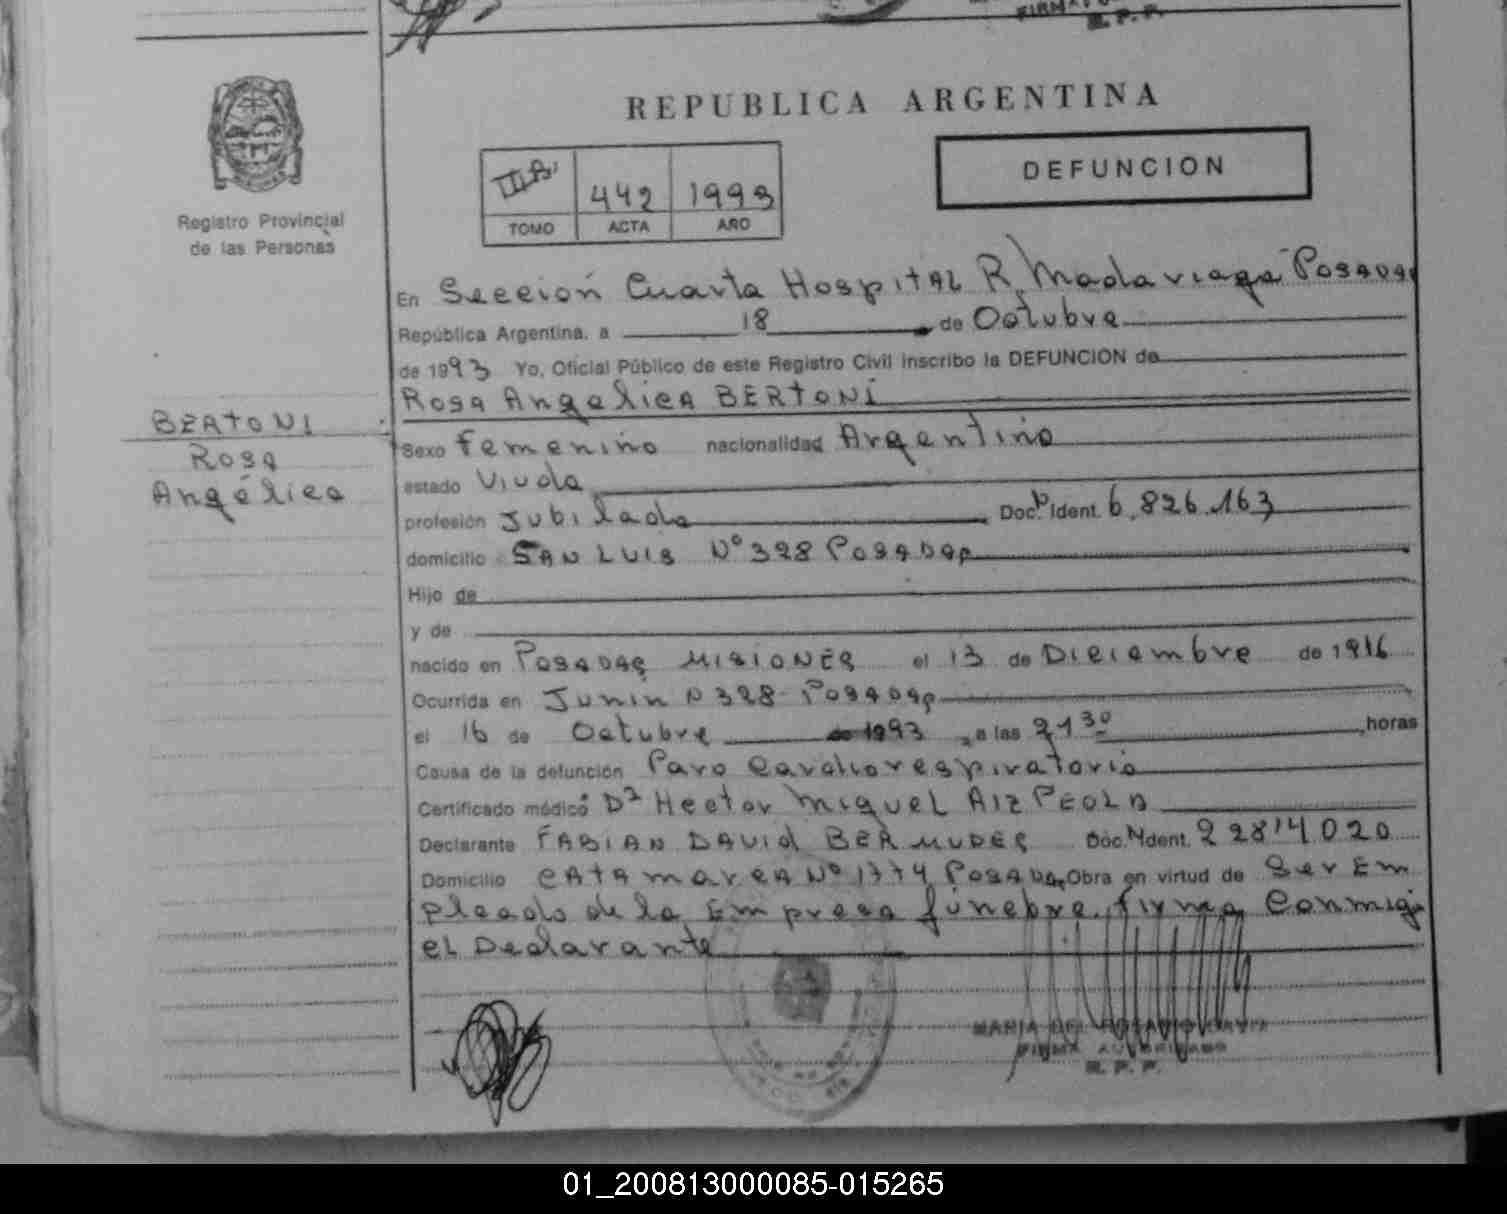 FIRMA
R. P. P.
REPUBLICA ARGENTINA
Registro Provincial
de las Personas
442 1993
TOMO ACTA AÑO
DEFUNCION
En Sección Cuarta Hospital R Madariaga Posadas
República Argentina, a 18 de Octubre
de 1993 Yo, Oficial Público de este Registro Civil inscribo la DEFUNCION de
Rosa Angelica BERTONI
BERTONI
Rosa
Angélica
Sexo Femenino nacionalidad Argentino
estado Viuda
profesión Jubilada Doc. N Ident. 6.826.163
domicilio SAN LUIS Nº 328 Posadas
Hijo de
y de
nacido en Posadas MISIONES el 13 de Diciembre de 1916
Ocurrida en Junin N 328 - Posadas
el 16 de Octubre de 1993, a las 21 30 horas
Causa de la defunción Paro Cardiorespiratorio
Certificado médico Dr Hector Miguel AIZPEOLA
Declarante FABIAN DAVID BERMUDES Doc. N Ident. 22814020
Domicilio CATAMARCA Nº 1774 Posadas, Obra en virtud de Ser Em
pleado de la Empresa fúnebre. firma Conmigo
el Declarante
MARIA DEL ROSARIO
FIRMA AUTORIZADA
R. P. P.
01_200813000085-015265